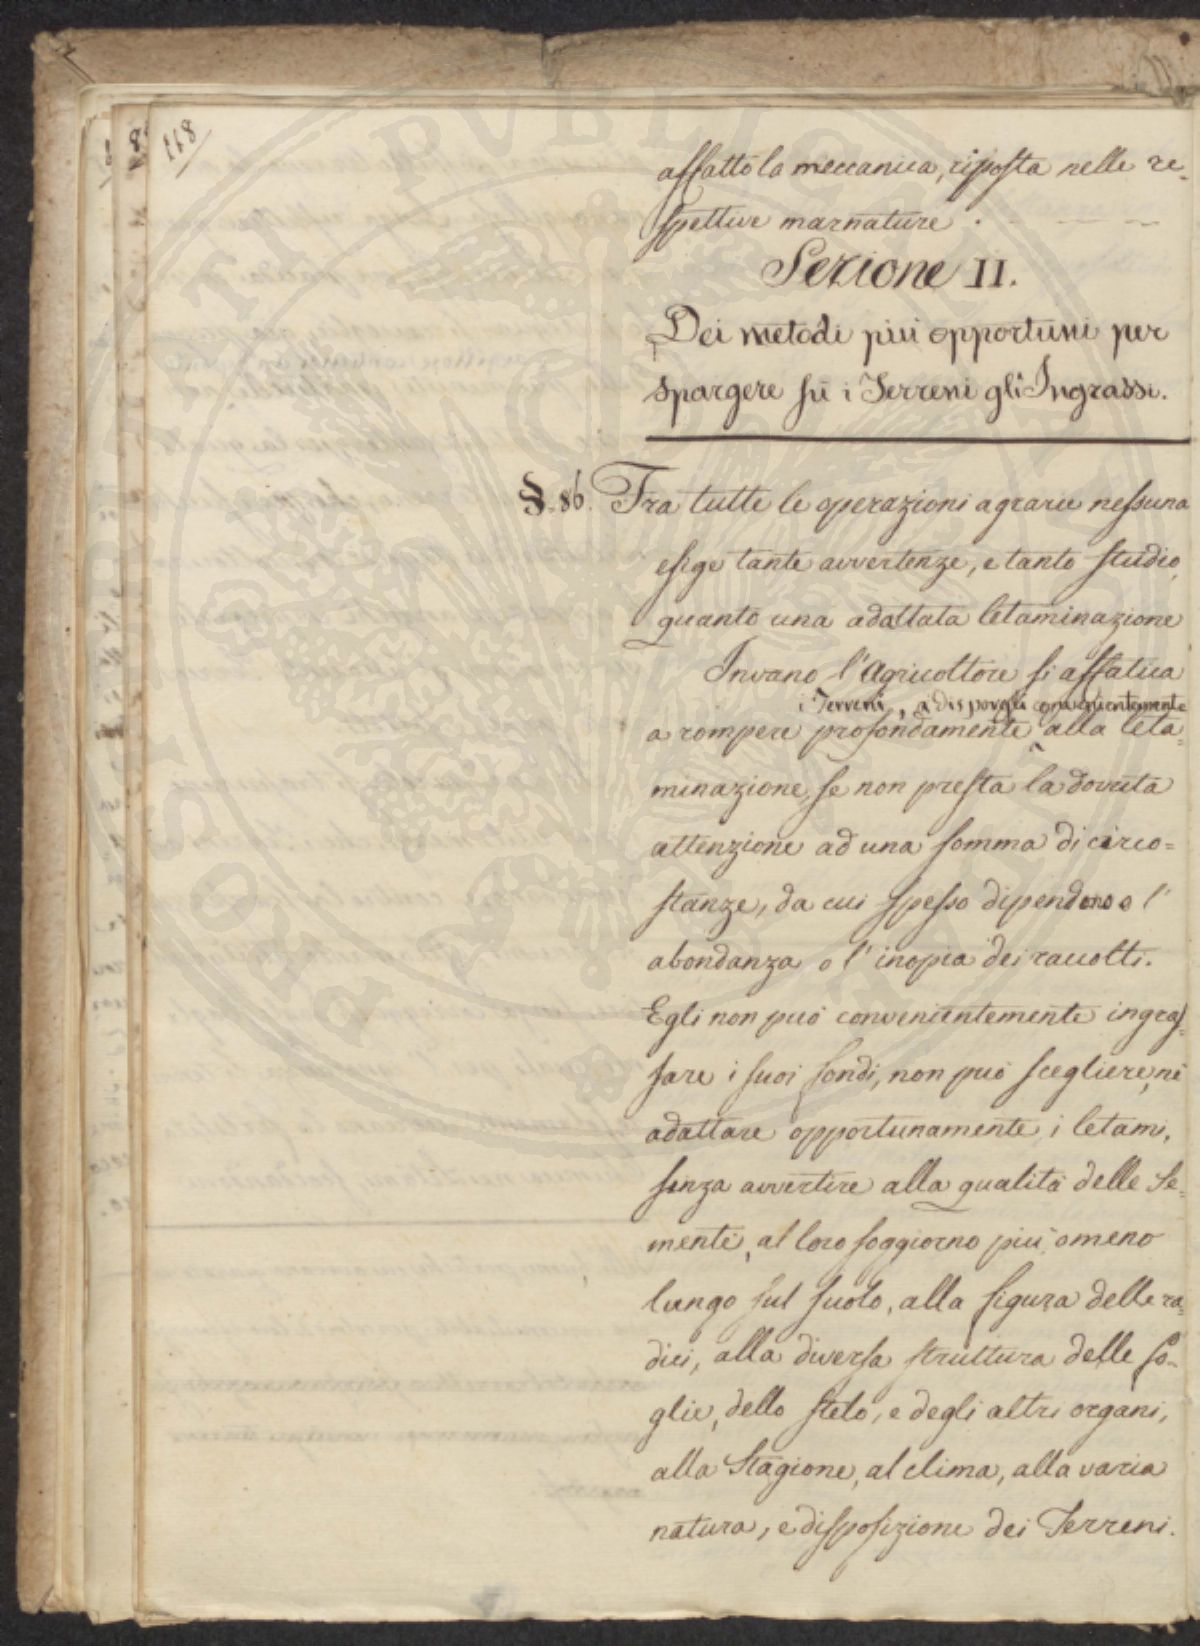 118
affatto la meccanica, riposta nelle re-
spettive marnature.
Sezione II.
Dei metodi più opportuni per
spargere sù i Terreni gli Ingrassi.
§. 86. Fra tutte le operazioni agrarie nessuna
esige tante avvertenze, e tanto studio,
quanto una adattata letaminazione
Invano l'Agricoltore si affatica
i Terreni, a disporgli conseguentemente
a rompere profondamente alla leta=
minazione, se non presta la dovuta
attenzione ad una somma di circo=
stanze, da cui spesso dipendono o l'
abondanza o l'inopia dei raccolti.
Egli non può convenientemente ingras=
sare i suoi fondi, non può scegliere, nè
adattare opportunamente i letami,
senza avvertire alla qualità delle Se=
menti, al loro soggiorno più, o meno
lungo sul suolo, alla figura delle ra=
dici, alla diversa struttura delle fo=
glie, dello stelo, e degli altri organi,
alla Stagione, al clima, alla varia
natura, e disposizione dei Terreni.